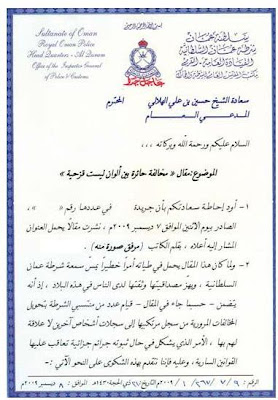 Sultanate of Oman
Royal Oman Police
Head Quarters - Al Qurum
Office of the Inspector General
of Police & Customs
سلطنة عمان
شرطة عمان السلطانية
القيادة العامة - القرم
سعادة الشيخ حسين بن علي الهلالي المحترم
المدعي العام
السلام عليكم ورحمة الله وبركاته ،،،
الموضوع: مقال « مخالفة حائرة بين ألوان ليست قزحية »
١ - أود إحاطة سعادتكم بأن جريدة في عددها رقم « »،
الصادر يوم الاثنين الموافق ٧ ديسمبر ٢٠٠٩م، نشرت مقالًا يحمل العنوان
المشار إليه أعلاه ، بقلم الكاتب (مرفق صورة منه).
٢ - ولما كان هذا المقال يحمل في طياته أمرًا خطيرًا يمس سمعة شرطة عمان
السلطانية ، ويهز مصداقيتها وثقتها لدى الناس في هذه البلاد ، إذ أنه
يتضمن - حسبما جاء في المقال - قيام عدد من منتسبي الشرطة بتحويل
المخالفات المرورية من سجل مرتكبها إلى سجلات أشخاص آخرين لا علاقة
لهم بها ، الأمر الذي يشكل في حال ثبوته جرائم جزائية تعاقب عليها
القوانين السارية ، وعليه فإننا نتقدم بهذه الشكوى على النحو الآتي :-
الموافق: ٨ ديسمبر ٢٠٠٩م